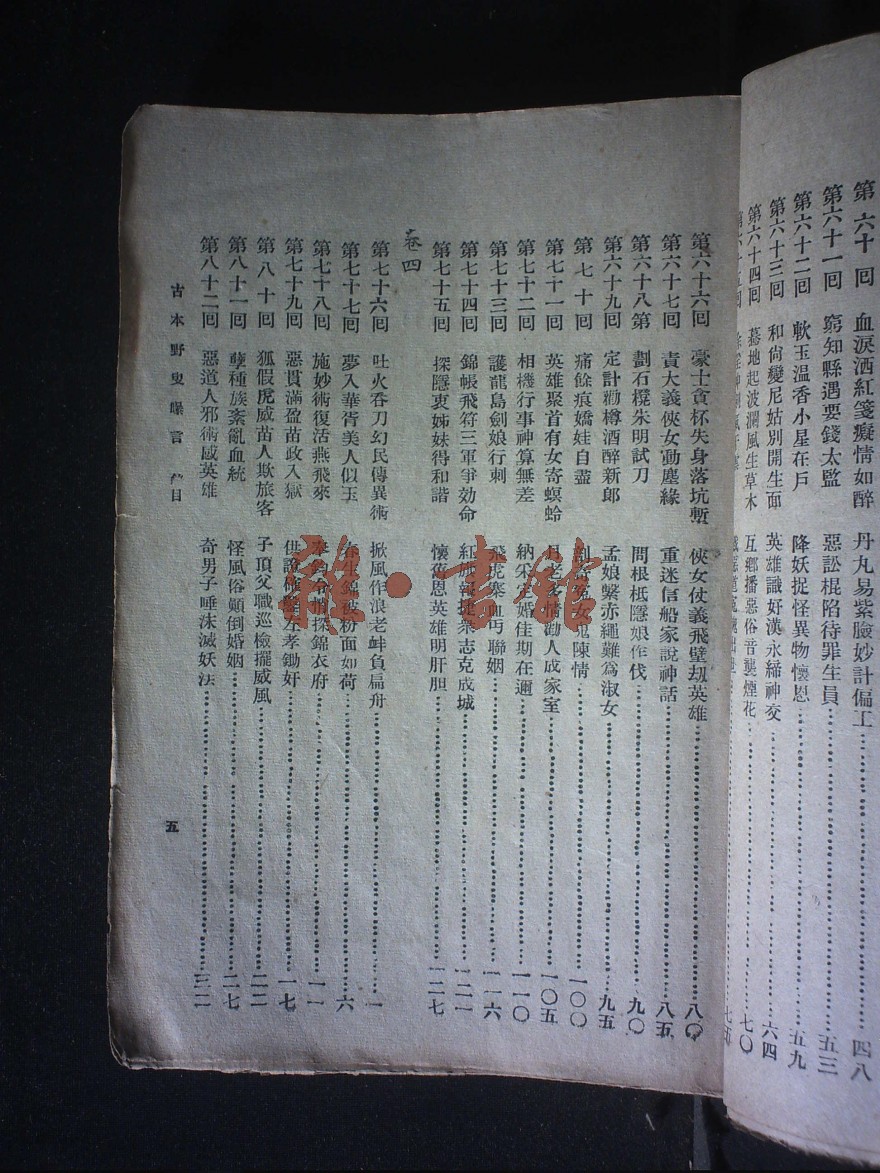 第六十回 血淚洒紅箋癡情如醉 丹丸易紫臉妙計偏工 四八
第六十一回 窮知縣遇要錢太監 惡訟棍陷待罪生員 五三
第六十二回 軟玉温香小星在戶 降妖捉怪異物懷恩 五九
第六十三回 和尙變尼姑別開生面 英雄識好漢永締神交 六四
第六十四回 墓地起波瀾風生草木 互鄉播惡俗音襲煙花 七〇
第六十五回
第六十六回 豪士貪杯失身落坑塹 俠女仗義飛壁刼英雄 八〇
第六十七回 責大義俠女動塵緣 重迷信船家說神話 八五
第六十八第 劃石櫈朱明試刀 問根柢隱娘作伐 九〇
第六十九回 定計勸樽酒醉新郎 孟娘繫赤繩難爲淑女 九五
第七十回 痛餘痕嬌娃自盡 冤女鬼陳情 一〇〇
第七十一回 英雄聚首有女寄螟蛉 月老多情勸人成家室 一〇五
第七十二回 相機行事神算無差 納采主婚佳期在邇 一一〇
第七十三回 護龍島劍娘行刺 飛虎寨血丐聯姻 一一六
第七十四回 錦帳飛符三軍爭効命 紅旂報捷衆志克成城 一二一
第七十五回 探隱衷姊妹得和諧 懷舊恩英雄明肝胆 一二七
卷四
第七十六回 吐火吞刀幻民傳異術 掀風作浪老蚌負扁舟 一
第七十七回 夢入華胥美人似玉 春生錦被粉面如荷 六
第七十八回 施妙術復活燕飛來 探錦衣府 一一
第七十九回 惡貫滿盈苗政入獄 供證確鑿左孝鋤奸 一七
第八十回 狐假虎威苗人欺旅客 子頂父職巡檢擺威風 二二
第八十一回 孽種族紊亂血統 怪風俗顚倒婚姻 二七
第八十二回 惡道人邪術惑英雄 奇男子唾沫滅妖法 三二
古本野叟曝言 目
五
雜·書館